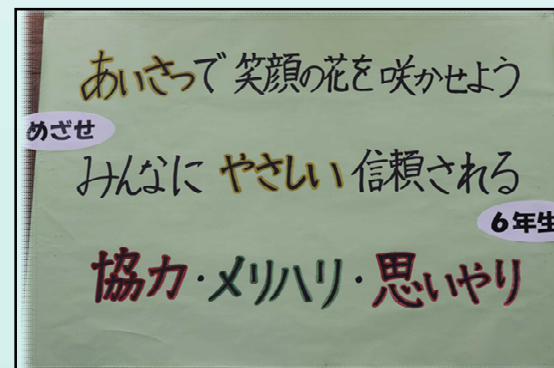 あいさつで笑顔の花を咲かせよう
めざせ
みんなにやさしい信頼される
6年生
協力・メリハリ・思いやり